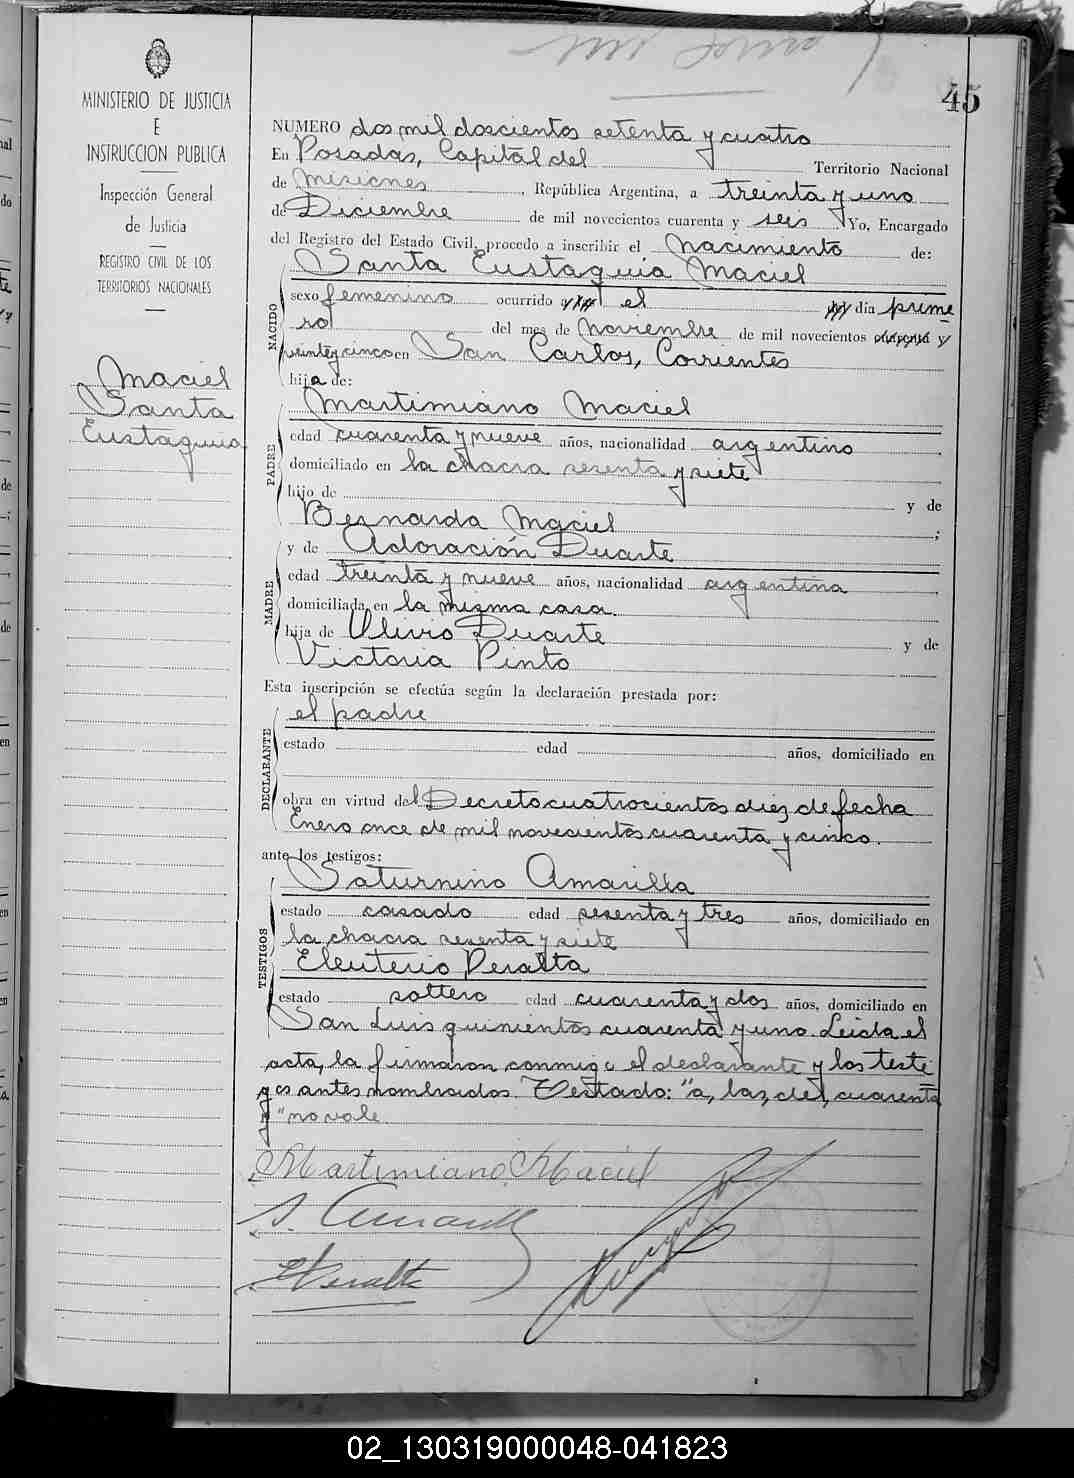 45
MINISTERIO DE JUSTICIA
E
INSTRUCCION PUBLICA
Inspección General
de Justicia
REGISTRO CIVIL DE LOS
TERRITORIOS NACIONALES
Maciel
Santa
Eustaquia
NUMERO dos mil doscientos setenta y cuatro
En Posadas, Capital del Territorio Nacional
de Misiones, República Argentina, a treinta y uno
de Diciembre de mil novecientos cuarenta y seis Yo, Encargado
del Registro del Estado Civil, procedo a inscribir el nacimiento de:
Santa Eustaquia Maciel
NACIDO
sexo femenino ocurrido el día prime
ro del mes de Noviembre de mil novecientos cuarenta y
veinteycinco en San Carlos, Corrientes
hija de:
Martimiano Maciel
PADRE
edad cuarenta y nueve años, nacionalidad argentino
domiciliado en la chacra sesenta y siete
hijo de y de
Bernarda Maciel ;
y de Adoración Duarte
MADRE
edad treinta y nueve años, nacionalidad argentina
domiciliada en la misma casa
hija de Olivio Duarte y de
Victoria Pinto
Esta inscripción se efectúa según la declaración prestada por:
el padre
DECLARANTE
estado edad años, domiciliado en
obra en virtud del Decreto cuatrocientos diez de fecha
Enero once de mil novecientos cuarenta y cinco.
ante los testigos:
Saturnino Amarilla
TESTIGOS
estado casado edad sesenta y tres años, domiciliado en
la chacra sesenta y siete
Eleuterio Peralta
estado soltero edad cuarenta y dos años, domiciliado en
San Luis quinientos cuarenta y uno. Leida el
acta, la firmaron conmigo el declarante y los testi
gos antes nombrados. Testado: "a, las, del, cuarenta
y" no vale.
Martimiano Maciel
S. Amarilla
E Peralta
02_130319000048-041823